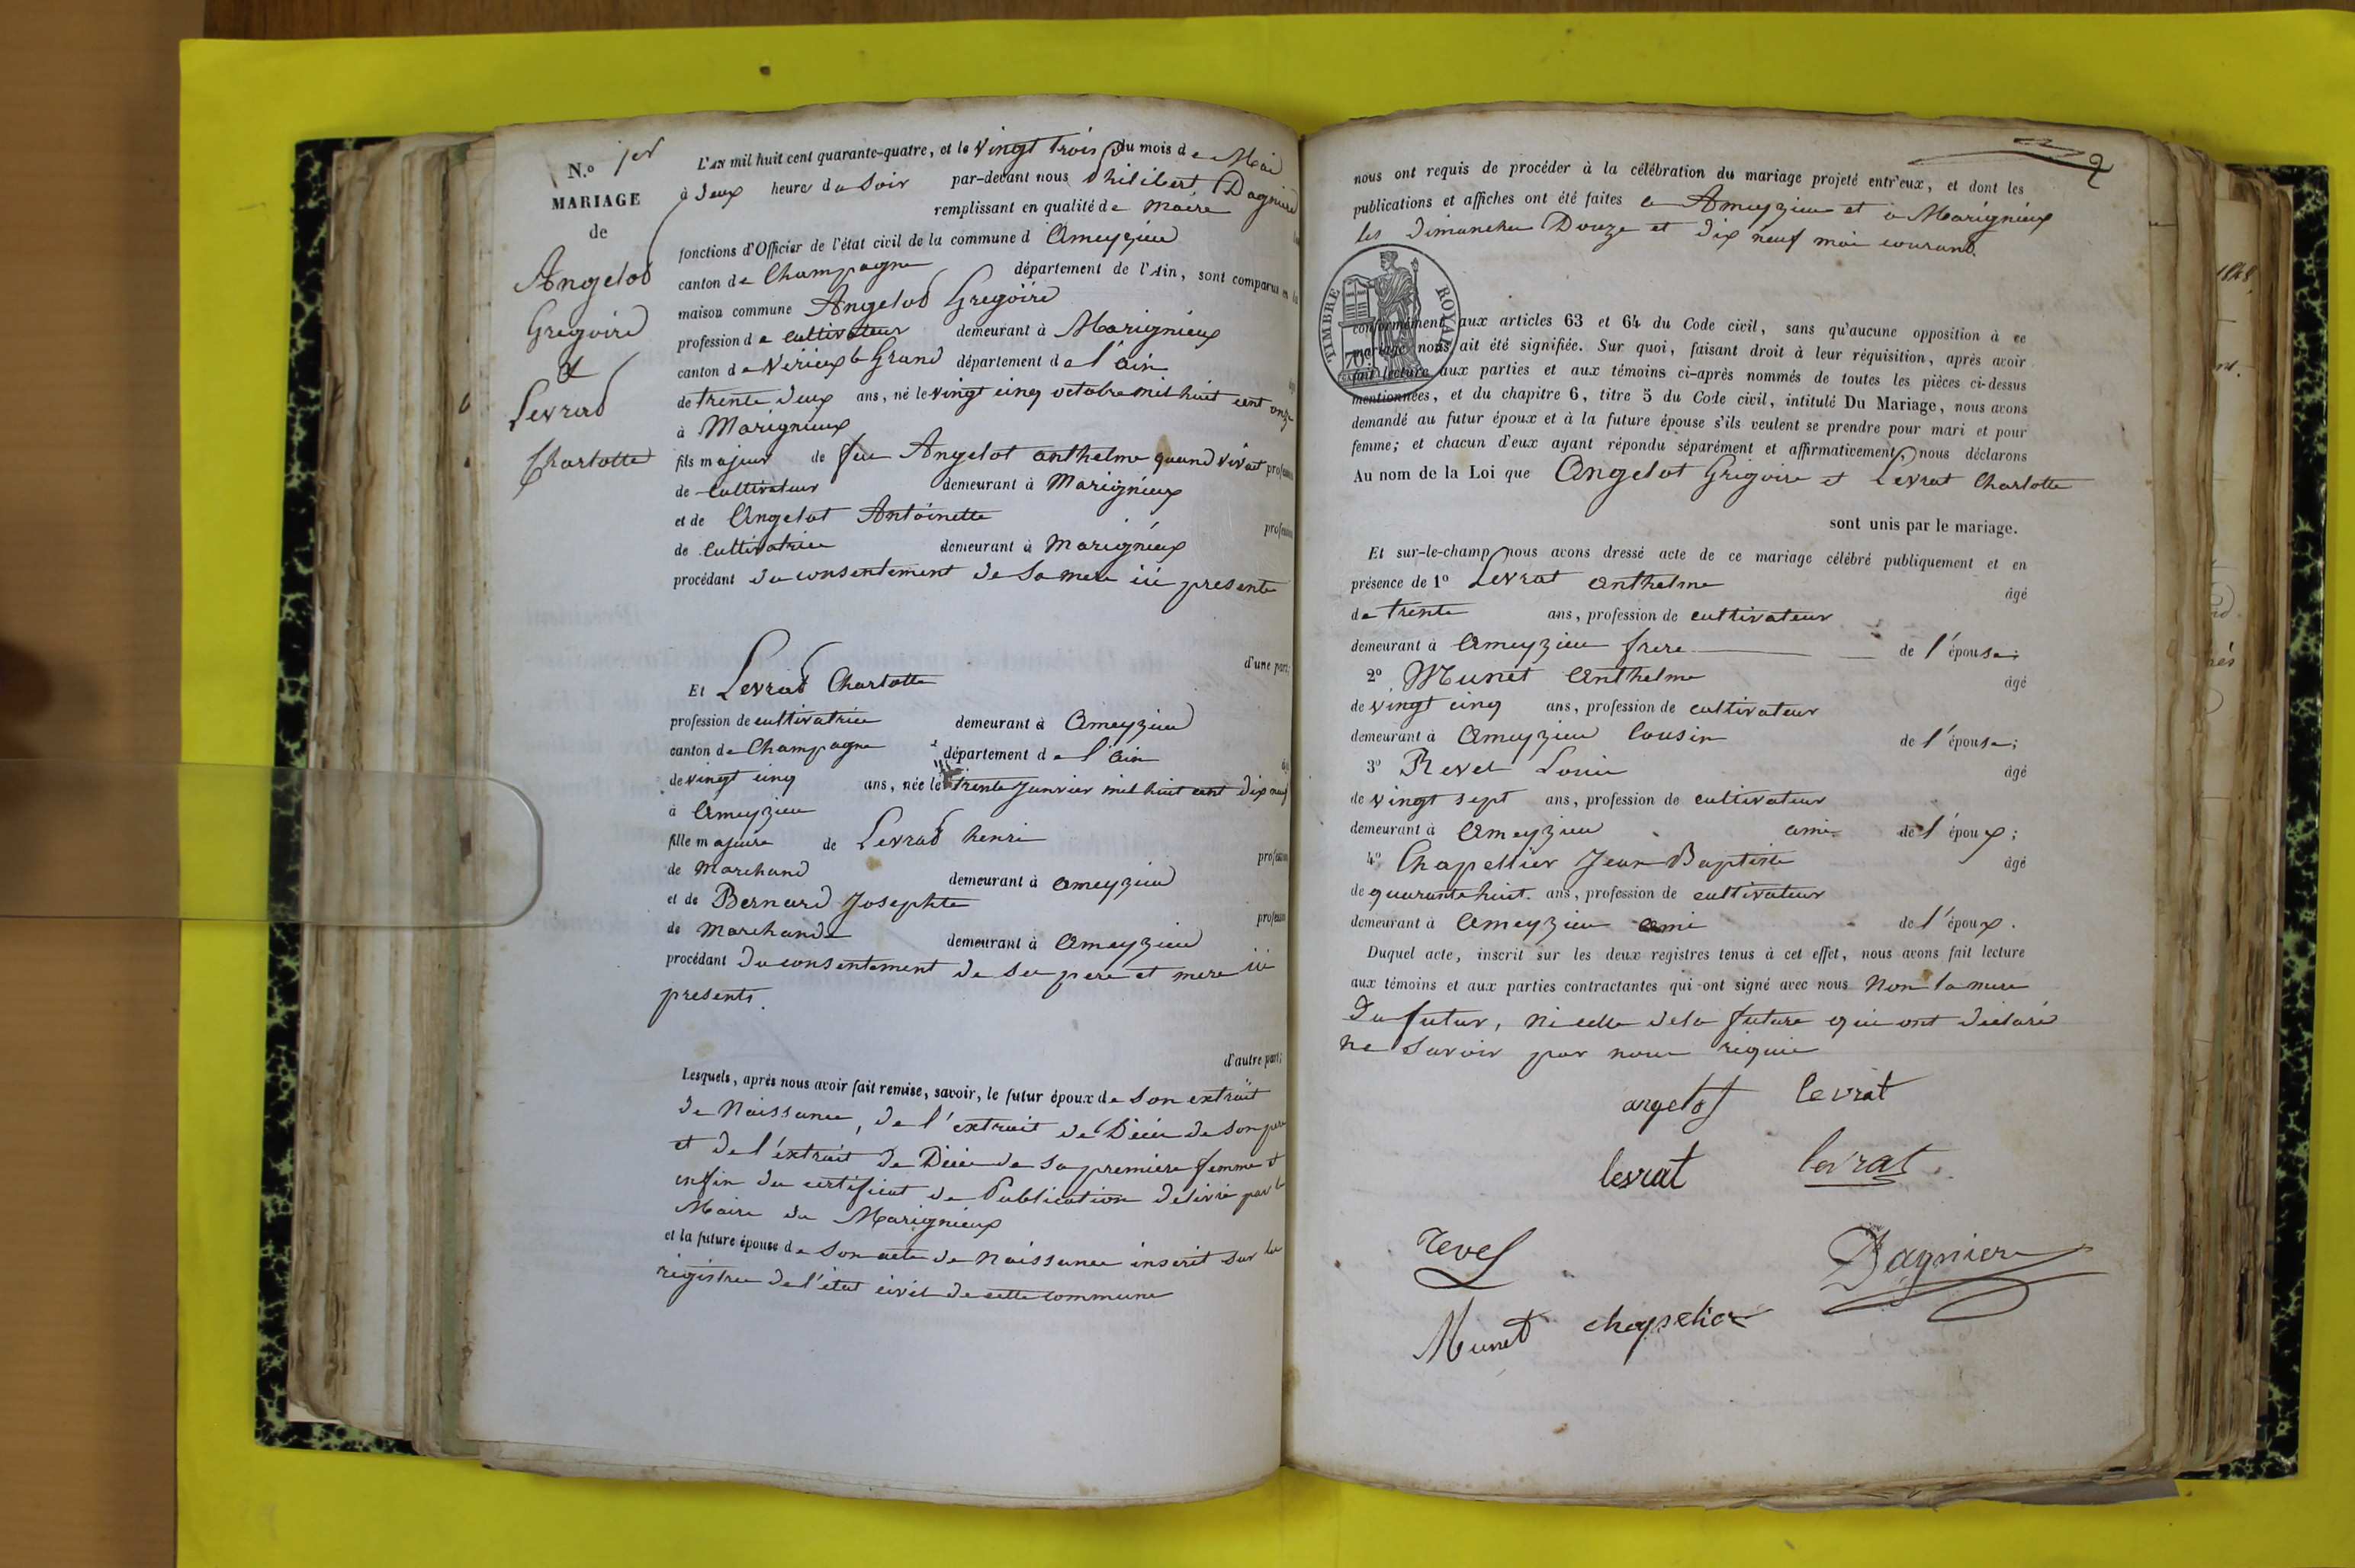 N.o 1er
MARIAGE
de
Angelot
Gregoire
et
Levrat
Charlotte
L'AN mil huit cent quarante-quatre, et le Vingt trois du mois de Mai
à deux heures du Soir par-devant nous Philibert Dagnière
remplissant en qualité de Maire
fonctions d'Officier de l'état civil de la commune d Ameyzieu
canton de Champagne département de l'Ain, sont comparus en la
maison commune Angelot Gregoire
profession de cultivateur demeurant à Marignieux
canton de Virieux le Grand département de l'ain
de trente deux ans, né le vingt cinq octobre mil huit cent onze
à Marignieux
fils majeur de feu Angelot anthelme quand vivait profession
de cultivateur demeurant à Marignieux
et de Angelot Antoinette profession
de cultivatrice demeurant à Marignieux
procédant du consentement de sa mere ici presente
d'une part;
Et Levrat Charlotte
profession de cultivatrice demeurant à Ameyzieu
canton de Champagne département de l'ain
de vingt cinq ans, née le trente Janvier mil huit cent dix neuf
à Ameyzieu
fille majeure de Levrat henri profession
de Marchand demeurant à Ameyzieu
et de Bernard Josephte profession
de Marchande demeurant à Ameyzieu
procédant du consentement de ses pere et mere ici
presents.
d'autre part;
Lesquels, après nous avoir fait remise, savoir, le futur époux de son extrait
de Naissance, de l'extrait de Décès de son pere
et de l'extrait de Décès de sa premiere femme et
enfin du certificat de Publication delivré par le
Maire de Marignieux
et la future épouse de son acte de Naissance inscrit sur les
registres de l'état civil de cette commune
2
nous ont requis de procéder à la célébration du mariage projeté entr'eux, et dont les
publications et affiches ont été faites a Ameyzieu et a Marignieux
les dimanches Douze et dix neuf mai courant.
TIMBRE ROYAL
conformément aux articles 63 et 64 du Code civil, sans qu'aucune opposition à ce
mariage nous ait été signifiée. Sur quoi, faisant droit à leur réquisition, après avoir
fait lecture aux parties et aux témoins ci-après nommés de toutes les pièces ci-dessus
mentionnées, et du chapitre 6, titre 5 du Code civil, intitulé Du Mariage, nous avons
demandé au futur époux et à la future épouse s'ils veulent se prendre pour mari et pour
femme; et chacun d'eux ayant répondu séparément et affirmativement, nous déclarons
Au nom de la Loi que Angelot Grégoire et Levrat Charlotte
sont unis par le mariage.
Et sur-le-champ nous avons dressé acte de ce mariage célébré publiquement et en
présence de 1o Levrat anthelme âgé
de trente ans, profession de cultivateur
demeurant à Ameyzieu frere de l'épouse;
2o Munet Anthelme âgé
de vingt cinq ans, profession de cultivateur
demeurant à Ameyzieu Cousin de l'épouse;
3o Revel Louis âgé
de vingt sept ans, profession de cultivateur
demeurant à Ameyzieu ami de l'époux;
4o Chapellier Jean Baptiste âgé
de quarante huit ans, profession de cultivateur
demeurant à Ameyzieu ami de l'époux.
Duquel acte, inscrit sur les deux registres tenus à cet effet, nous avons fait lecture
aux témoins et aux parties contractantes qui ont signé avec nous Non la mere
du futur, ni celle de la future qui ont déclaré
ne savoir par nous réquis
angelot levrat
levrat levrat
revel Dagniere
Munet chapelier